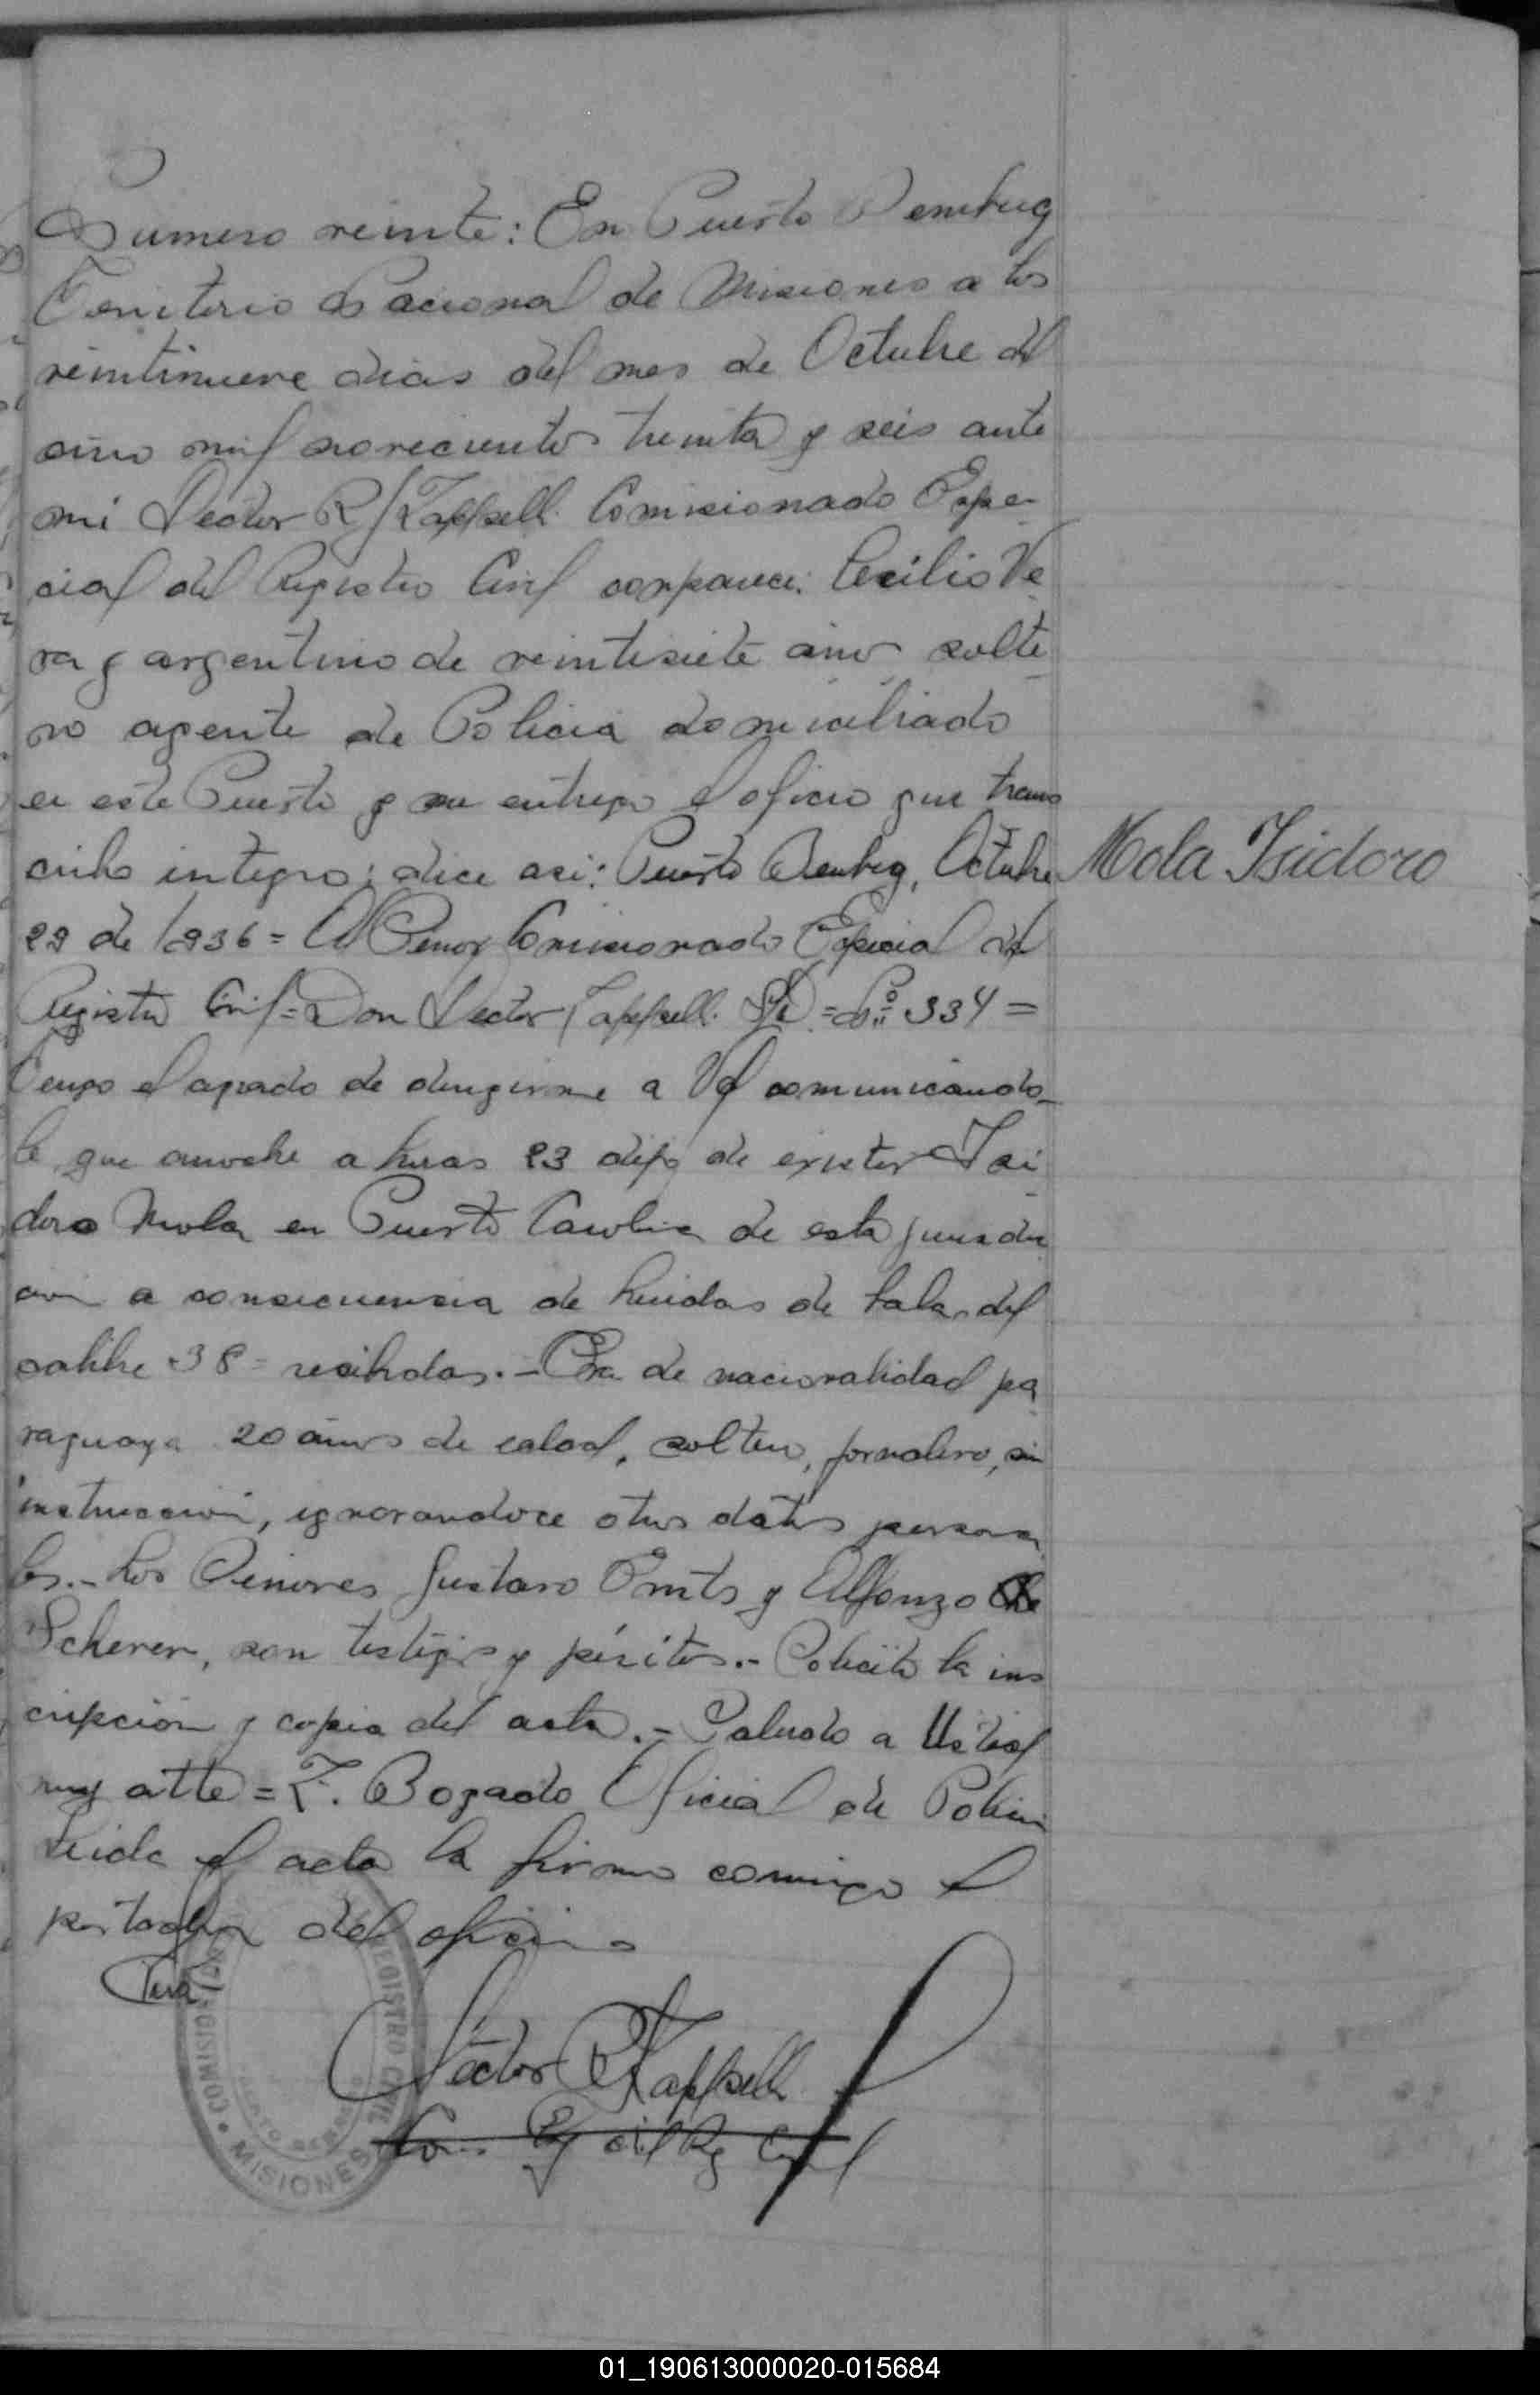 Numero veinte: En Puerto Bemberg
Territorio Nacional de Misiones a los
veintinueve dias del mes de Octubre del
año mil novecientos treinta y seis ante
mi Hector R Tappselli Comisionado Espe-
cial del Registro Civil comparece: Cecilio Ve
ra y argentino de veintisiete años solte
ro agente de Policia domiciliado
en este Puerto y me entrega el oficio que trans
cribo integro; dice asi: Puerto Bemberg, Octubre
29 de 1936 = Al Señor Comisionado Especial del
Registro Civil = Don Hector Tappselli S/D = Nº 334 =
Tengo el agrado de dirigirme a Vd comunicando-
le que anoche a horas 23 dejo de existir Isi
doro Mola en Puerto Carolina de esta jurisdic
cion a consecuencia de heridas de balas del
calibre 38 = recibidas.- Era de nacionalidad pa
raguaya 20 años de edad, soltero, jornalero, sin
instruccion, ignorandoce otros datos persona
les.- Los Señores Gustavo Ernts y Alfonzo
Scherer, son testigos y péritos.- Solicito la ins
cripción y copia del acta.- Saludo a Usted
muy atte = F. Bogado Oficial de Policia
Leida el acta la firma conmigo el
portador del oficio
Hector R Tappselli
Com. Esp del Reg Civil
Mola Isidoro
REGISTRO CIVIL
COMISIO
MISIONES
01_190613000020-015684